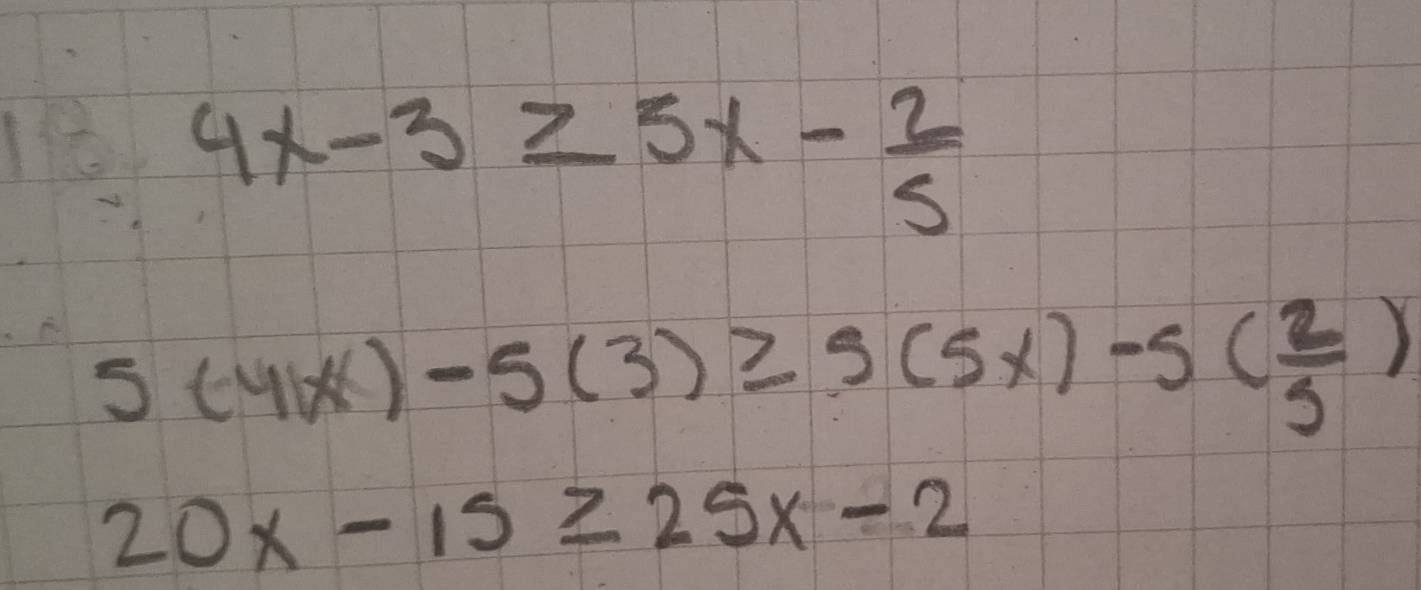 4x - 3 ≥ 5x - 2/5
5(4x) - 5(3) ≥ 5(5x) - 5(2/5)
20x - 15 ≥ 25x - 2